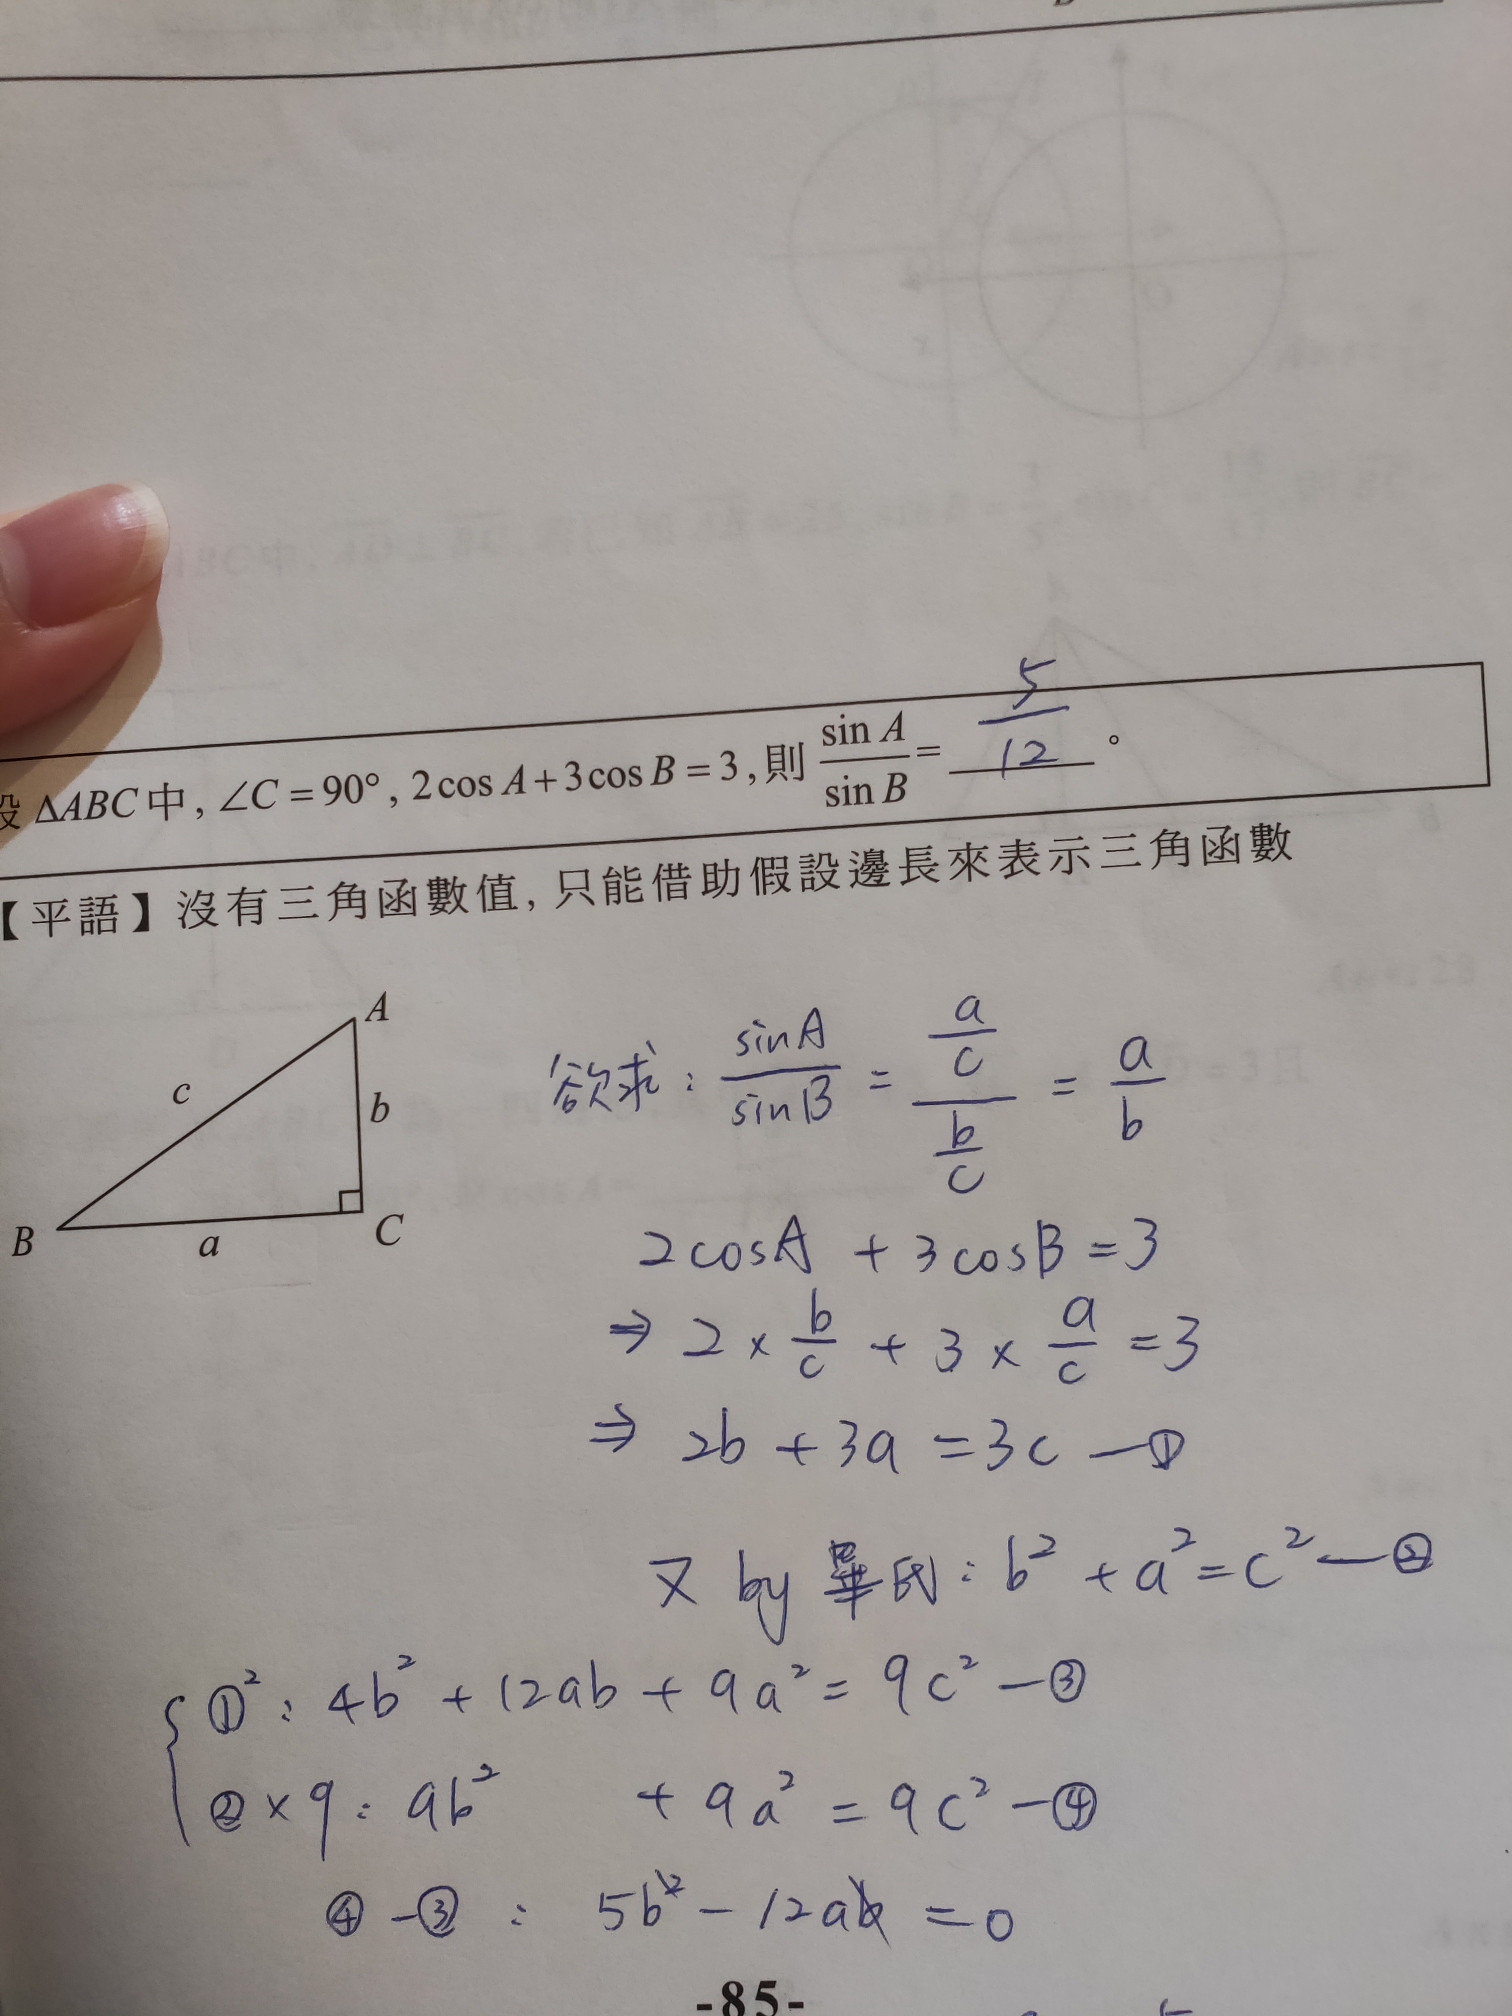 設 ΔABC 中, ∠C = 90°, 2 cos A + 3 cos B = 3, 則 sin A / sin B = 5/12 。
【平語】沒有三角函數值, 只能借助假設邊長來表示三角函數
A
c
b
B
a
C
欲求: sinA / sinB = (a/c) / (b/c) = a/b
2cosA + 3cosB = 3
⇒ 2 × b/c + 3 × a/c = 3
⇒ 2b + 3a = 3c —①
又 by 畢氏: b² + a² = c² —②
①²: 4b² + 12ab + 9a² = 9c² —③
②×9: 9b² + 9a² = 9c² —④
④-③ : 5b² - 12ab = 0
-85-